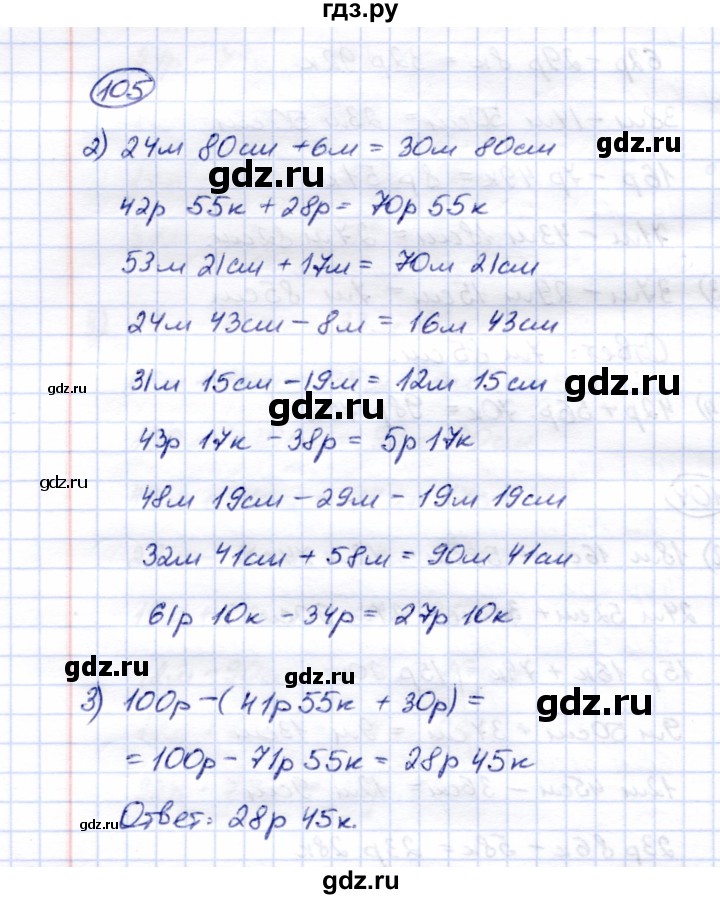 гдз.ру
105
2) 24м 80см + 6м = 30м 80см
gdz.ru
gdz.ru
42р 55к + 28р = 70р 55к
53м 21см + 17м = 70м 21см
24м 43см - 8м = 16м 43см
31м 15см - 19м = 12м 15см
gdz.ru
gdz.ru
gdz.ru
43р 17к - 38р = 5р 17к
gdz.ru
48м 19см - 29м - 19м 19см
32м 41см + 58м = 90м 41см
61р 10к - 34р = 27р 10к
gdz.ru
gdz.ru
3) 100р - (41р 55к + 30р) =
gdz.ru
= 100р - 71р 55к = 28р 45к
gdz.ru
Ответ: 28р 45к.
gdz.ru